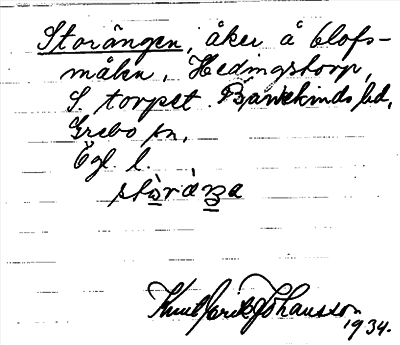 Storängen, åker å Olofs-
måla, Hedingstorp,
S. torpet. Bankekinds hd,
Grebo sn,
Ögl. l.
stòràŋa
Knut Janrik Johansson
1934.